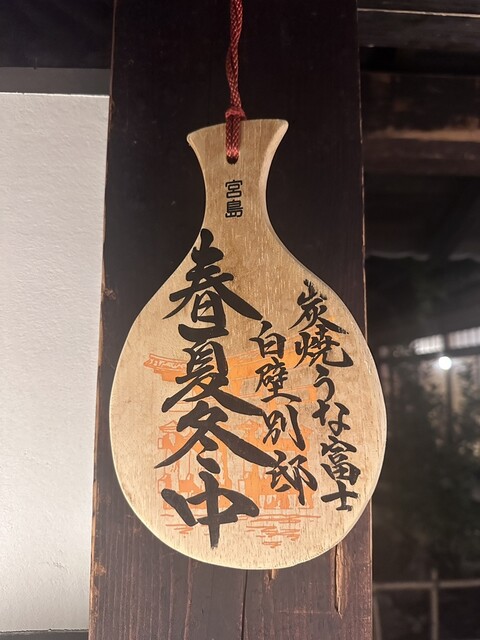 宮島
炭焼うな富士
白壁別邸
春夏冬中